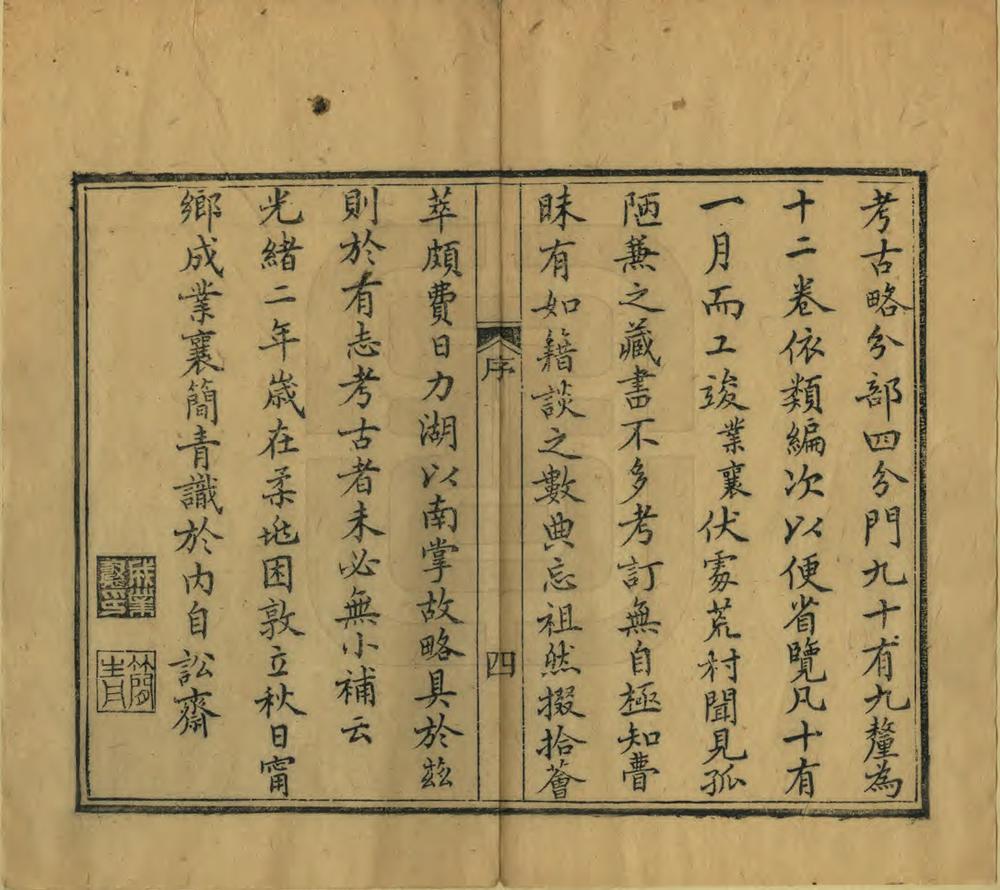 考古略分部四分門九十有九釐為
十二卷依類編次以便省覽凡十有
一月而工竣業襄伏處荒村聞見孤
陋兼之藏書不多考訂無自極知瞢
昧有如籍談之數典忘祖然掇拾薈
序
四
萃頗費日力湖以南掌故略具於茲
則於有志考古者未必無小補云
光緒二年歲在柔兆困敦立秋日甯
鄉成業襄簡青識於內自訟齋
成業襄印
簡青